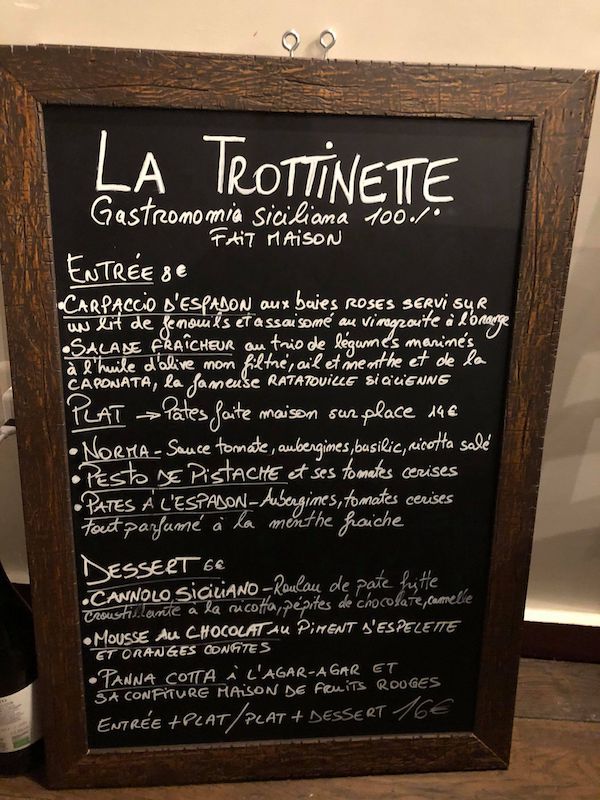 LA TROTTINETTE
Gastronomia siciliana 100%
FAIT MAISON
ENTRÉE 8€
• CARPACCIO D'ESPADON aux baies ROSES SERVI SUR
un lit de fenouils et assaisomé au vinagraite à l'orange
• SALADE FRAÎCHEUR au trio de légumes marinés
à l'huile d'olive non filtré, ail et menthe et de la
CAPONATA, la fameuse RATATOUILLE SICILIENNE
PLAT → Pâtes faite maison sur place 14€
• NORMA - Sauce tomate, aubergines, basilic, ricotta salé
• PESTO DE PISTACHE et ses tomates cerises
• PATES À L'ESPADON - Aubergines, tomates cerises
tout parfumé à la menthe fraiche
DESSERT 6€
• CANNOLO SICILIANO - Roulau de pate fritte
croustillante à la ricotta, pépites de chocolate, cannelle
• MOUSSE AU CHOCOLAT AU PIMENT D'ESPELETTE
ET ORANGES CONFITES
• PANNA COTTA À L'AGAR-AGAR ET
SA CONFITURE MAISON DE FRUITS ROUGES
ENTRÉE + PLAT / PLAT + DESSERT 16€